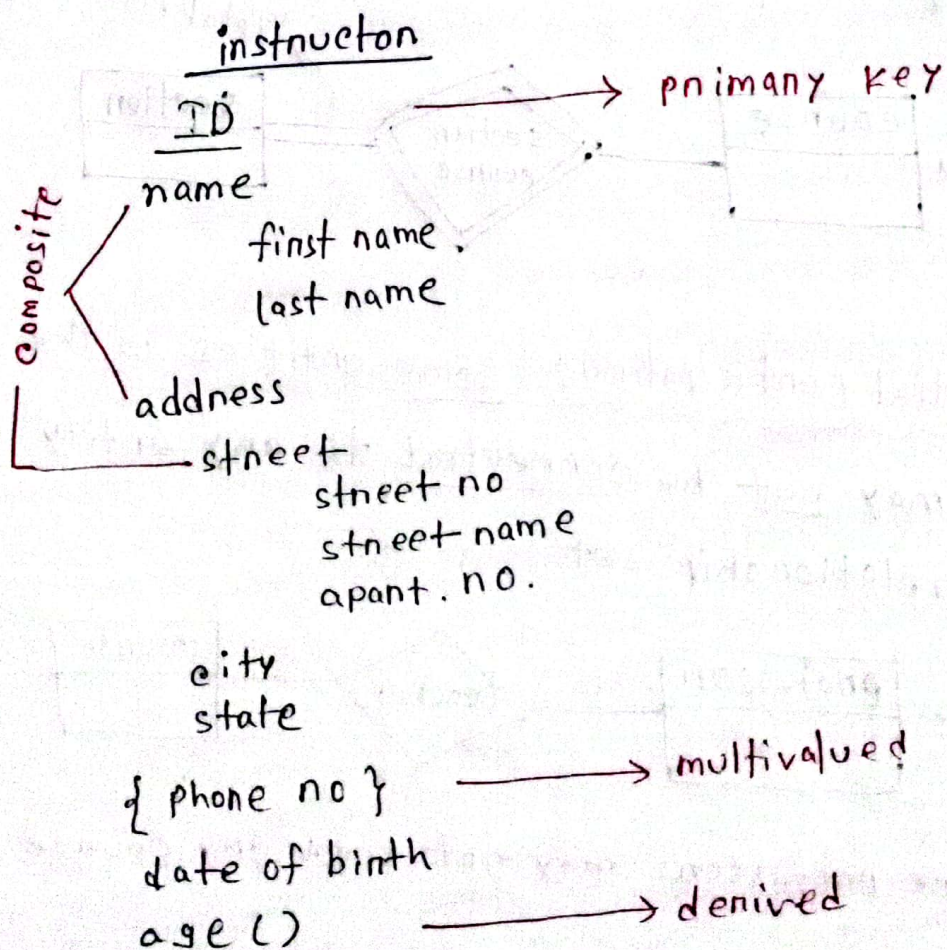 instructor
ID → primary key
name
first name
last name
composite
address
street
street no
street name
apart. no.
city
state
{ phone no } → multivalued
date of birth
age () → derived